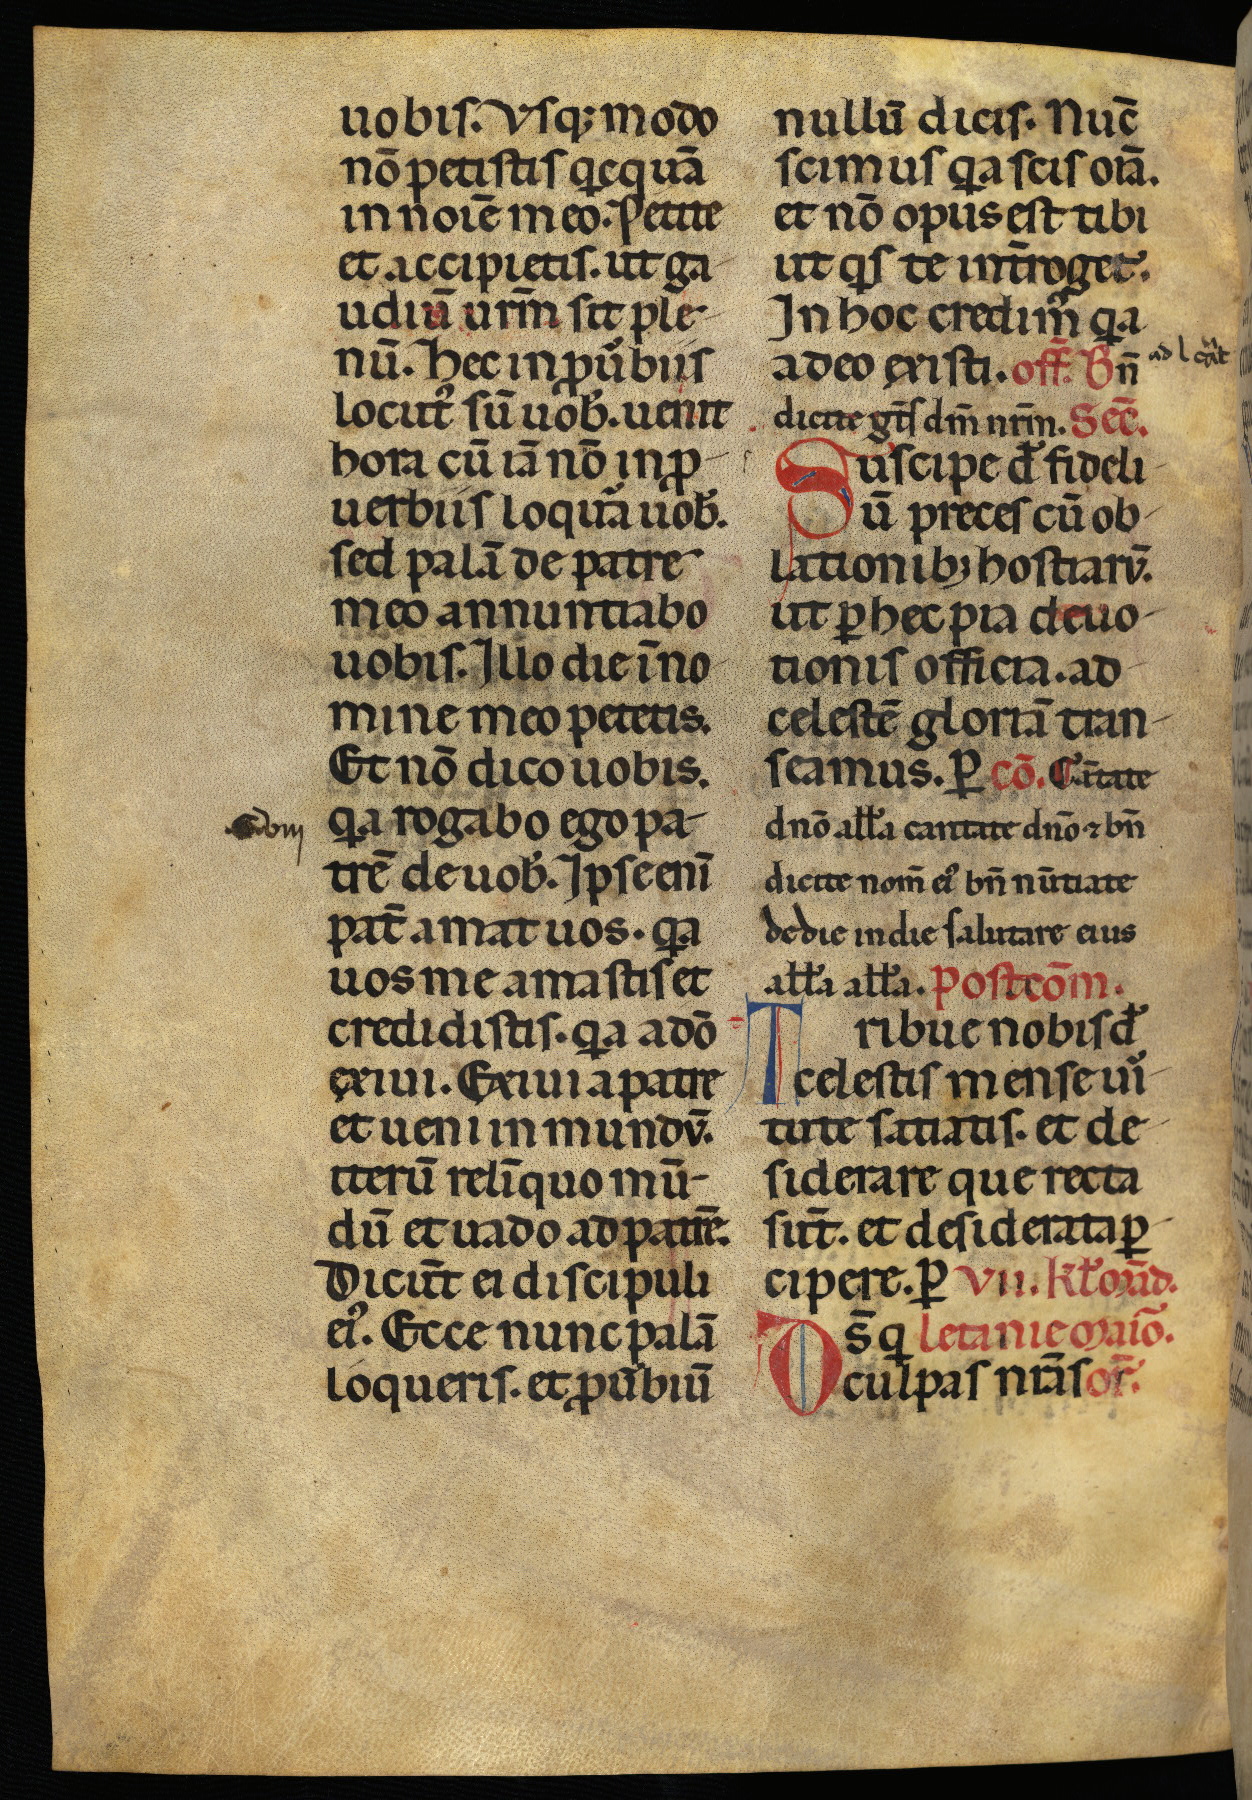 uobis. Vsq; modo
nō petistis qcquā
in noīe meo. Petite
et accipietis. ut ga
udiū urm̄ sit ple-
nū. hec in puˀbiis
locutꝰ sū uob̄. uenit
hora cū iā nō in p-
uerbiis loquar̄ uob̄.
sed palā de patre
meo annuntiabo
uobis. Illo die ī no
mine meo petetis.
Et nō dico uobis.
qa rogabo ego pa-
trē de uob̄. Ipse enī
pat̄ amat uos. qa
uos me amastis et
credidistis. qa adō
exiui. Exiui a patre
et ueni in mundū.
iterū relīquo mū-
dū et uado ad patrē.
Dicūt ei discipuli
eiꝰ. Ecce nunc palā
loqueris. et puˀbiū
nullū dicis. Nūc
scimus qa scis om̄a.
et nō opus est tibi
ut qs te int̄roget.
In hoc credimꝰ qa
a deo existi. off̄. Bn̄
dicite gēs dm̄ nrm̄. Sec̄.
Suscipe dˀ fideli
ū preces cū ob-
lationib; hostiarū.
ut ꝑ hec pia deuo-
tionis officia. ad
celestē gloriā tran-
seamus. P cō. Cātate
dnō all̄a cantate dnō ⁊ bn̄
dicite nom̄ eiꝰ bn̄ nūtiate
de die in die salutare eius
all̄a all̄a. Postcōm.
Tribue nobis dˀ
celestis mense uir-
tute satiatis. et de-
siderare que recta
sūt. et desiderata ꝑ
cipere. P VII. kl̄ mad̄.
Ds̄ q letanie maio.
culpas nrās or̄.